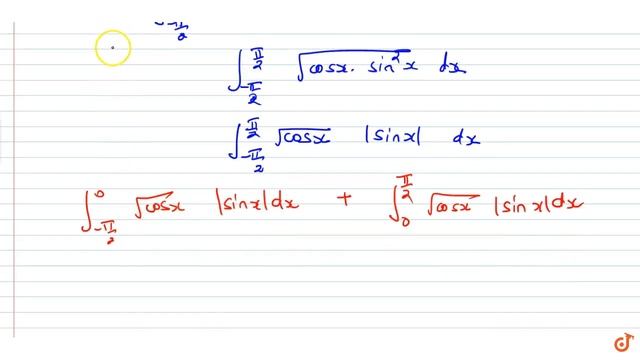 -π/2
∫_{-π/2}^{π/2} √(cosx · sin²x) dx
∫_{-π/2}^{π/2} √cosx |sinx| dx
∫_{-π/2}^{0} √cosx |sinx| dx + ∫_{0}^{π/2} √cosx |sinx| dx